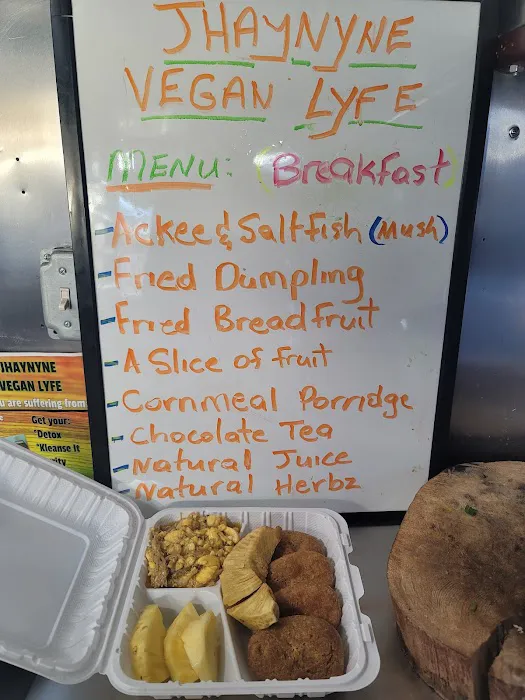 JHAYNYNE
VEGAN LYFE
MENU: (Breakfast)
- Ackee & Saltfish (Mush)
- Fried Dumpling
- Fried Breadfruit
- A Slice of fruit
- Cornmeal Porridge
- Chocolate Tea
- Natural Juice
- Natural Herbz
JHAYNYNE
VEGAN LYFE
u are suffering from
Get your:
*Detox
*Kleanse it